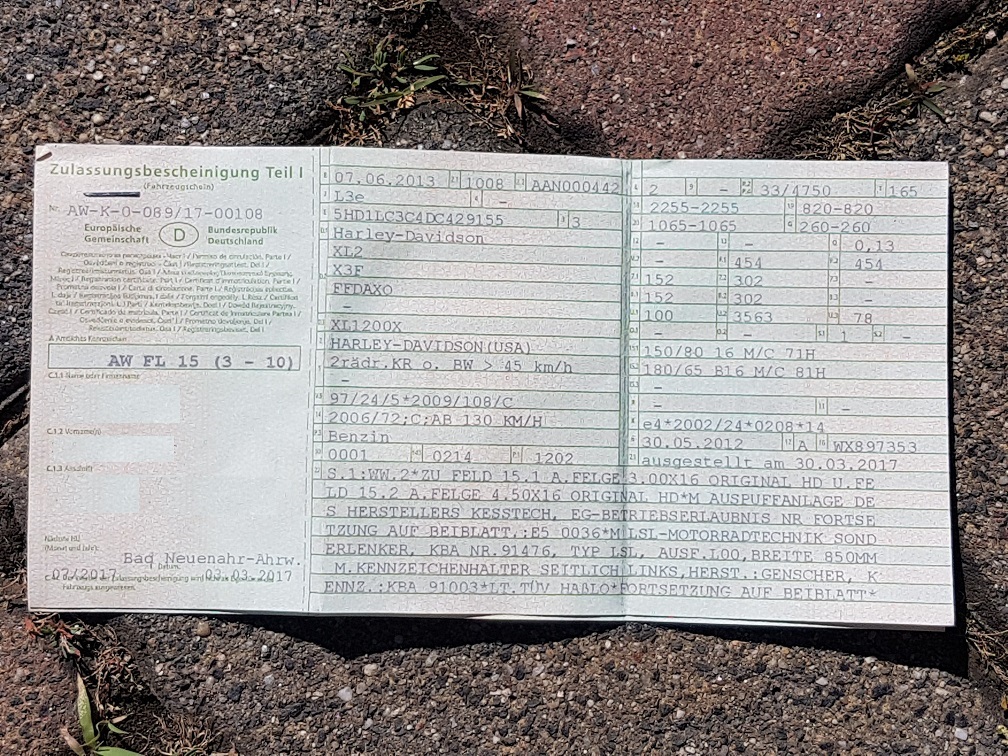 Zulassungsbescheinigung Teil I
(Fahrzeugschein)
Nr. AW-K-0-089/17-00108
Europäische Gemeinschaft
D
Bundesrepublik Deutschland
A Amtliches Kennzeichen
AW FL 15 (3 - 10)
C.1.1 Name oder Firmenname
C.1.2 Vorname(n)
C.1.3 Anschrift
Nächste HU
(Monat und Jahr)
Bad Neuenahr-Ahrw.
Datum
07/2017
07.06.2013 1008 AAN000442
L3e -
5HD1LC3C4DC429155 3
Harley-Davidson
XL2
X3F
FFDAX0
-
XL1200X
HARLEY-DAVIDSON(USA)
2rädr.KR o. BW > 45 km/h
-
97/24/5*2009/108/C
2006/72;C;AB 130 KM/H
Benzin
0001 0214 1202
2 - 33/4750 165
2255-2255 820-820
1065-1065 260-260
- - 0,13
- 454 454
152 302 -
152 302 -
100 3563 78
- - 1 -
150/80 16 M/C 71H
180/65 B16 M/C 81H
-
- -
e4*2002/24*0208*14
30.05.2012 A WX897353
ausgestellt am 30.03.2017
S.1:WW.2*ZU FELD 15.1 A.FELGE 3.00X16 ORIGINAL HD U.FE
LD 15.2 A.FELGE 4.50X16 ORIGINAL HD*M AUSPUFFANLAGE DE
S HERSTELLERS KESSTECH, EG-BETRIEBSERLAUBNIS NR FORTSE
TZUNG AUF BEIBLATT.:E5 0036*M LSL-MOTORRADTECHNIK SOND
ERLENKER, KBA NR.91476, TYP LSL, AUSF.L00,BREITE 850MM
M.KENNZEICHENHALTER SEITLICH LINKS,HERST.:GENSCHER, K
ENNZ.:KBA 91003*LT.TÜV HAßLO*FORTSETZUNG AUF BEIBLATT*